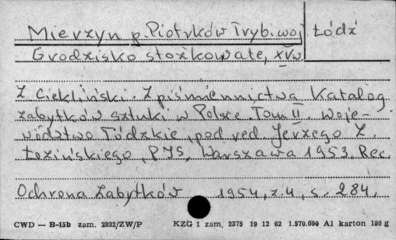 Mierzyn p. Piotrków Tryb. woj Łódź
Grodzisko stożkowate, XVw
Z. Ciekliński. Z piśmiennictwa Katalog
zabytków sztuki w Polsce. Tom II. Woje-
wództwo Łódzkie, pod red Jerzego Z.
Łozińskiego, PIS, Warszawa 1953. Rec.
Ochrona Zabytków 1954, z. 4, s. 284.
CWD — B-15b zam. 2832/ZW/P KZG 1 zam. 2375 19 12 62 1.570.000 A1 karton 180 g